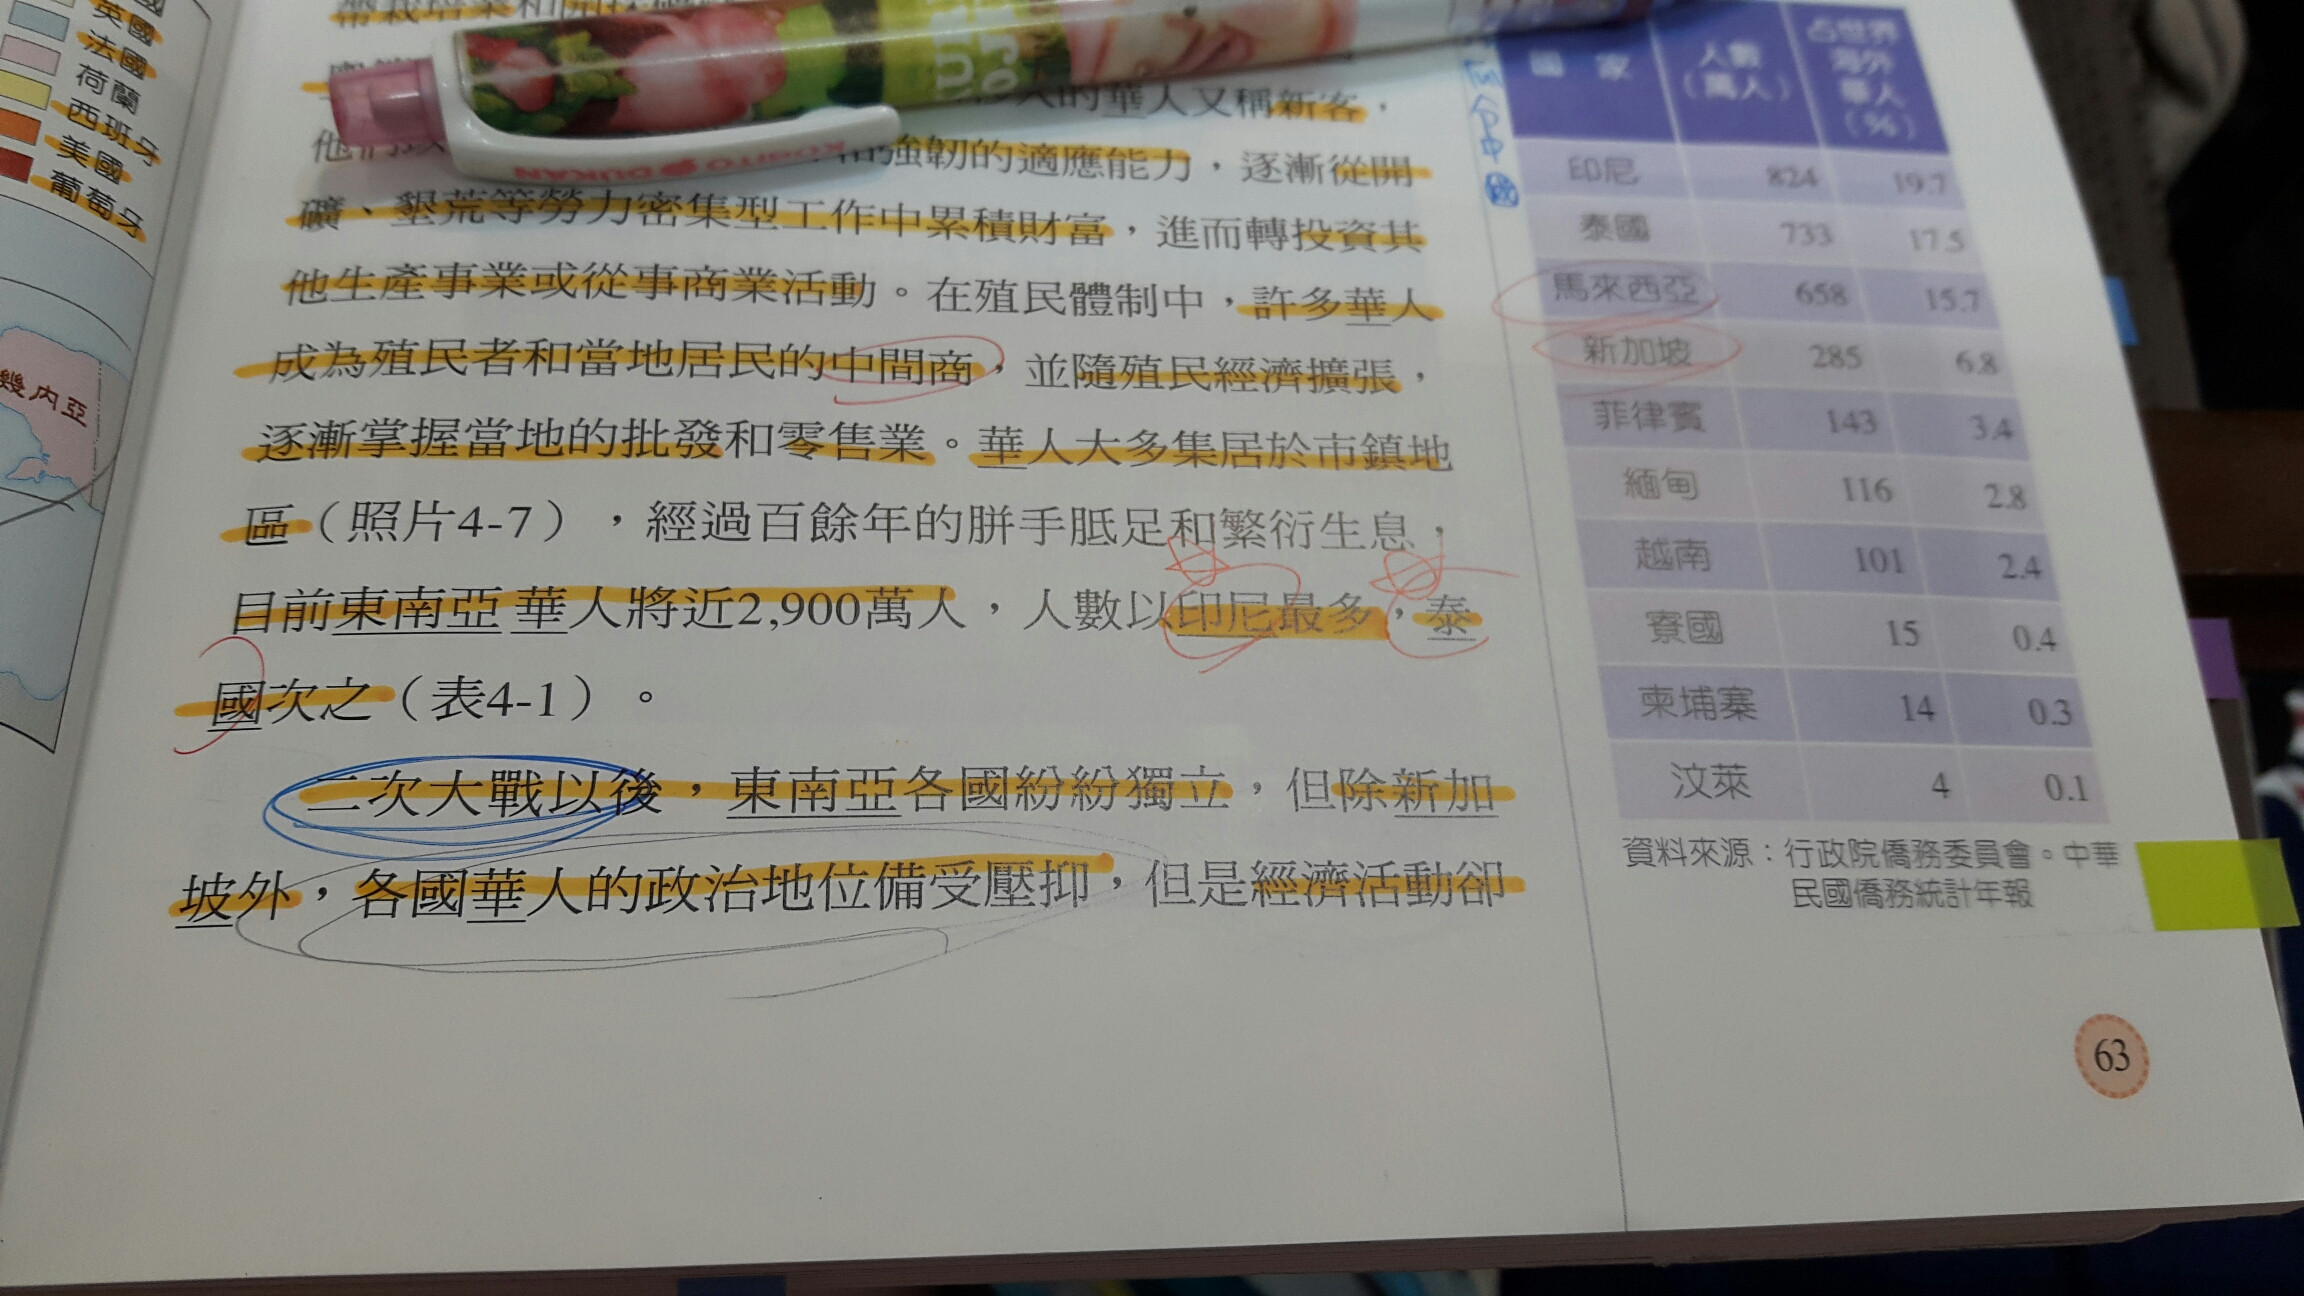 英國
法國
荷蘭
西班牙
美國
葡萄牙
幾內亞
KUSHITO DUKAN
人的華人又稱新客，
強韌的適應能力，逐漸從開
礦、墾荒等勞力密集型工作中累積財富，進而轉投資其
他生產事業或從事商業活動。在殖民體制中，許多華人
成為殖民者和當地居民的中間商，並隨殖民經濟擴張，
逐漸掌握當地的批發和零售業。華人大多集居於市鎮地
區（照片4-7），經過百餘年的胼手胝足和繁衍生息，
目前東南亞華人將近2,900萬人，人數以印尼最多，泰
國次之（表4-1）。
二次大戰以後，東南亞各國紛紛獨立，但除新加
坡外，各國華人的政治地位備受壓抑，但是經濟活動卻
國家 人數（萬人） 占世界海外華人（%）
印尼 824 19.7
泰國 733 17.5
馬來西亞 658 15.7
新加坡 285 6.8
菲律賓 143 3.4
緬甸 116 2.8
越南 101 2.4
寮國 15 0.4
柬埔寨 14 0.3
汶萊 4 0.1
資料來源：行政院僑務委員會。中華
民國僑務統計年報
63